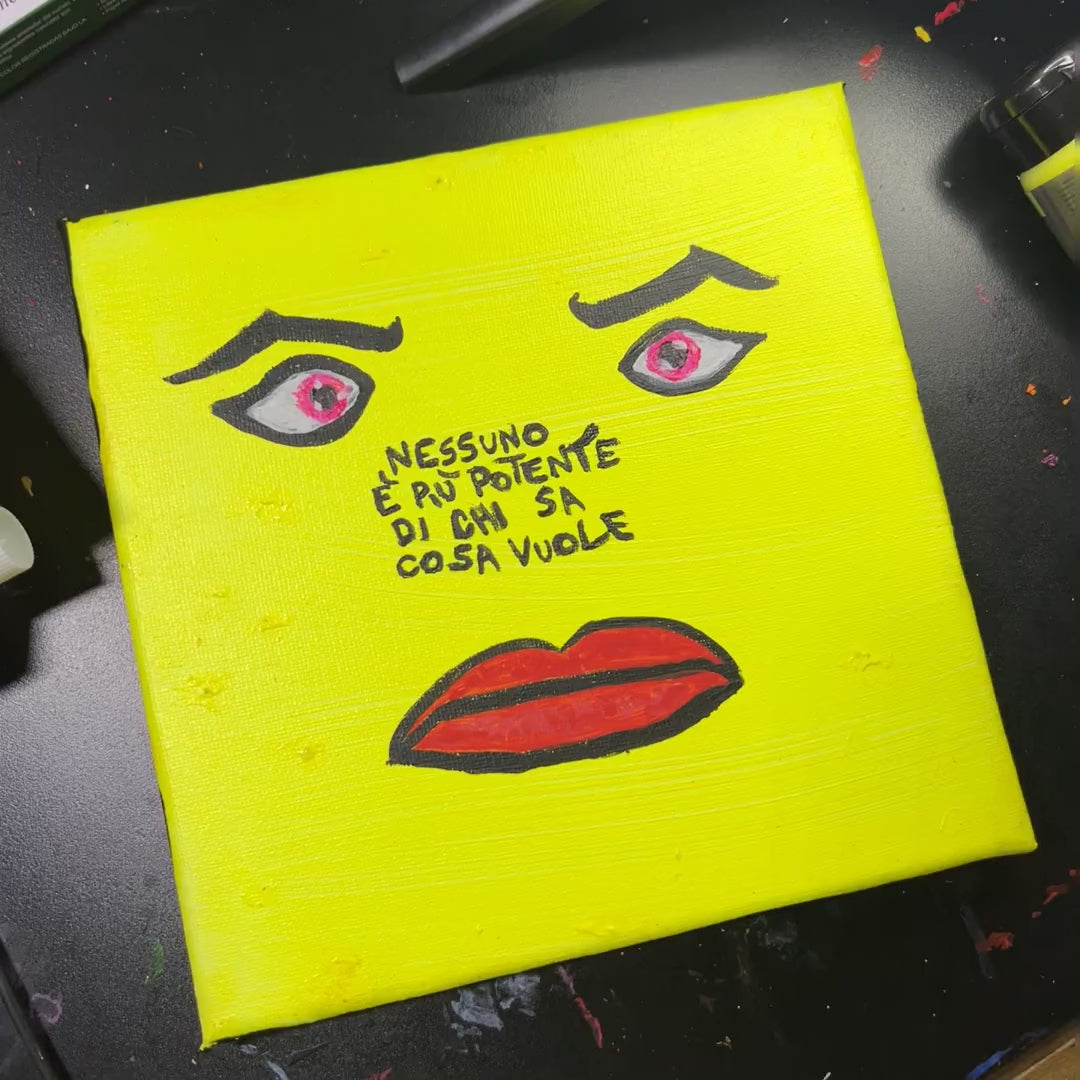 NESSUNO
È PIÙ POTENTE
DI CHI SA
COSA VUOLE